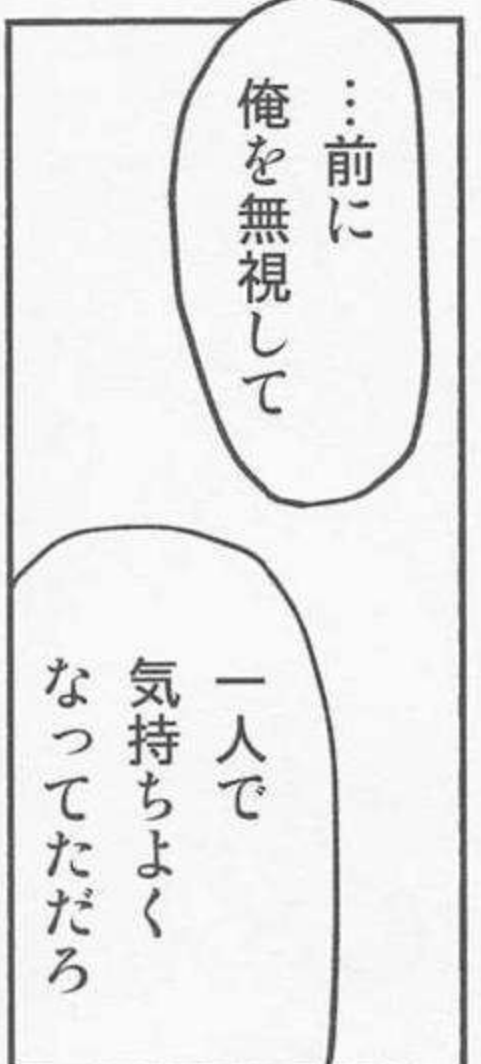 …前に
俺を無視して
一人で
気持ちよく
なってただろ